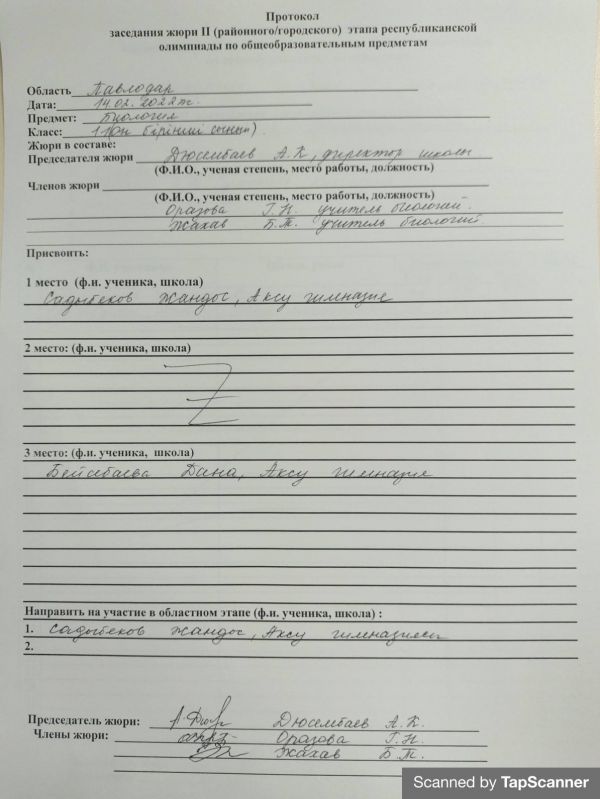 Протокол
заседания жюри II (районного/городского) этапа республиканской
олимпиады по общеобразовательным предметам
Область Павлодар
Дата: 14.02.2022г.
Предмет: Биология
Класс: 11 (он бірінші сынып)
Жюри в составе:
Председателя жюри Дюсембаев А.К, директор школы
(Ф.И.О., ученая степень, место работы, должность)
Членов жюри
(Ф.И.О., ученая степень, место работы, должность)
Оразова Г.Н. учитель биологии.
Жахав Б.Т. учитель биологий.
Присвоить:
1 место (ф.и. ученика, школа)
Садыбеков Жандос, Аксу гимназие
2 место: (ф.и. ученика, школа)
Z
3 место: (ф.и. ученика, школа)
Бейсебаева Дана, Аксу гимназия
Направить на участие в областном этапе (ф.и. ученика, школа) :
1. Садыбеков Жандос, Аксу гимназиесы
2.
Председатель жюри: Дюсембаев А.К.
Члены жюри: Оразова Г.Н.
Жахав Б.Т.
Scanned by TapScanner